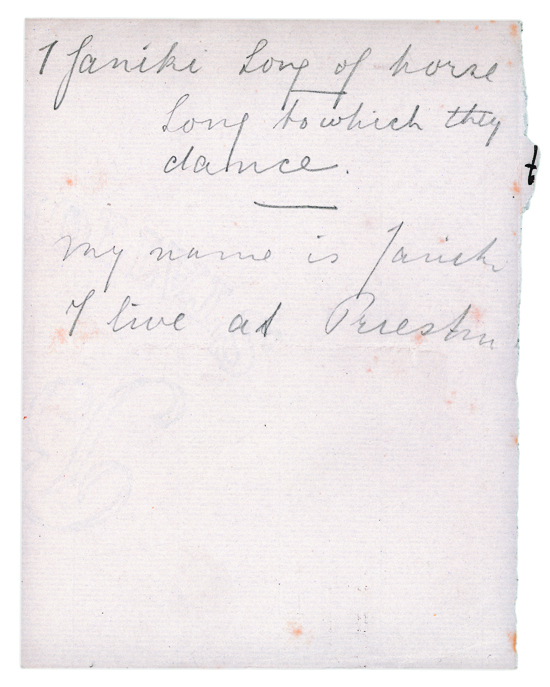 1 Janiki Song of horse
Song to which they
dance.
My name is Janiki
I live at Prieska
t